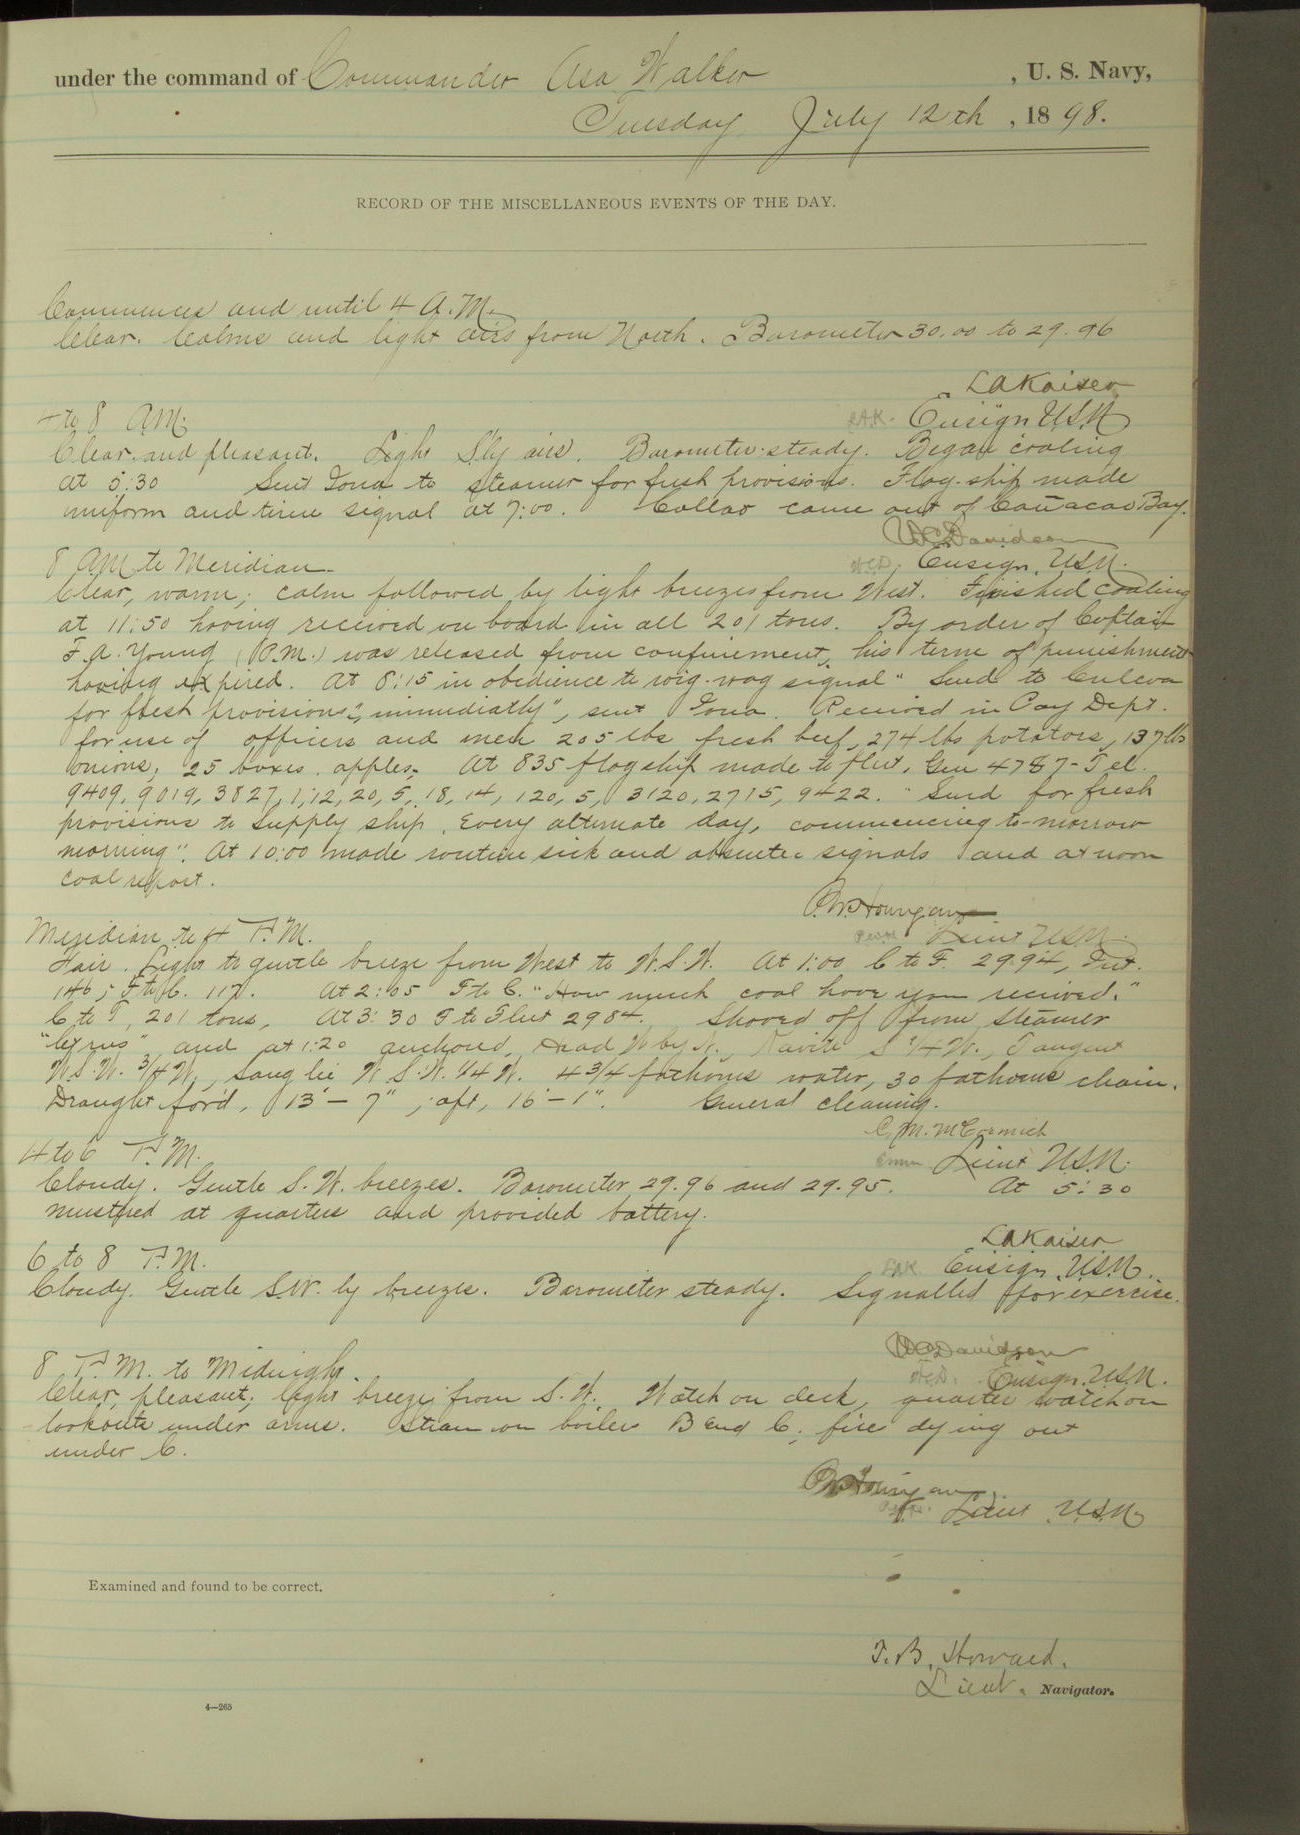 under the command of Commander Asa Walker , U. S. Navy,
Tuesday July 12th , 1898.
RECORD OF THE MISCELLANEOUS EVENTS OF THE DAY.
Commences and until 4 A.M.
Clear. Calms and light airs from North. Barometer 30.00 to 29.96
LAKaiser
4 to 8 AM.
LAK. Ensign USN
Clear and pleasant. Light S'ly airs. Barometer steady. Began coaling
at 5:30 Sent Iona to steamer for fresh provisions. Flag-ship made
uniform and time signal at 7:00. Callao came out of Cañacao Bay.
WCDavidson
8 AM to Meridian.
WCD. Ensign, USN.
Clear, warm; calm followed by light breezes from West. Finished coaling
at 11:50 having received on board in all 201 tons. By order of Captain
F. A. Young (P.M.) was released from confinement, his term of punishment
having expired. At 8:15 in obedience to wig-wag signal "Send to Culcoa
for fresh provisions, immediatly", sent Iona. Received in Pay Dept.
for use of officers and men 205 lbs fresh beef, 274 lbs potatoes, 137 lbs
onions, 25 boxes apples. At 835 flagship made to fleet, Gen 4787-Tel.
9409, 9019, 3827, 1, 12, 20, 5, 18, 14, 120, 5, 3120, 2715, 9422. "Send for fresh
provisions to supply ship. Every alternate day, commencing to-morrow
morning". At 10:00 made routine sick and absentee signals and at noon
coal report.
PWHourigan
Meridian to 4 P.M.
Lieut USN.
Fair. Light to gentle breeze from West to W.S.W. At 1:00 C to F. 29.94, Int.
146; F to C. 117. At 2:05 F to C. "How much coal have you received."
C to F, 201 tons, At 3:30 F to Fleet 2984. Shoved off from steamer
"Cyrus" and at 1:20 anchored, Head W by N., Cavite S 1/4 W., Tangent
W.S.W. 3/4 W., Sanglie W.S.W. 1/4 W. 4 3/4 fathoms water, 30 fathoms chain.
Draught for'd, 13'-7"; aft, 16'-1". General cleaning.
C. M. McCormick
4 to 6 P.M.
Lieut USN.
Cloudy. Gentle S.W. breezes. Barometer 29.96 and 29.95. At 5:30
mustered at quarters and provided battery.
LAKaiser
6 to 8 P.M.
LAK. Ensign, USN.
Cloudy. Gentle S.W. by breezes. Barometer steady. Signalled for exercise.
WCDavidson
8 P.M. to Midnight.
WCD. Ensign. USN.
Clear, pleasant, light breeze from S.W. Watch on deck, quarter watch on
lookouts under arms. Steam on boilers B and C; fire dying out
under C.
PWHourigan
Lieut USN
Examined and found to be correct.
T. B. Howard.
Lieut. Navigator.
4—265